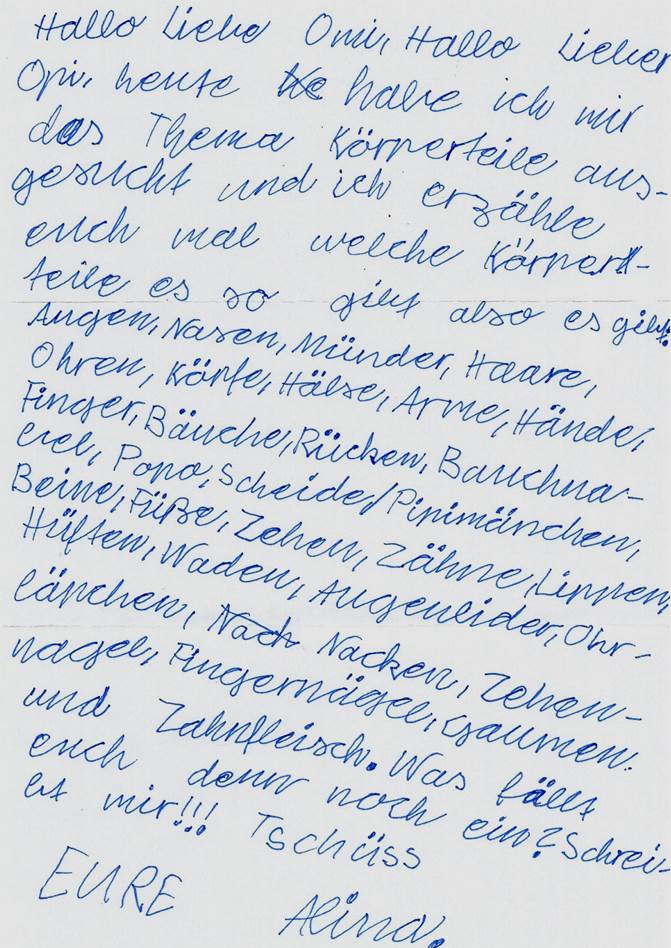 Hallo Liebe Omi, Hallo Lieber
Opi, heute habe ich mir
das Thema Körperteile aus-
gesucht und ich erzähle
euch mal welche Körper-
teile es so gibt also es gibt:
Augen, Nasen, Münder, Haare,
Ohren, Körfe, Hälse, Arme, Hände,
Finger, Bäuche, Rücken, Bauchna-
bel, Popo, Scheide/Pipimänchen,
Beine, Füße, Zehen, Zähne, Lippen,
Hüften, Waden, Augenlider, Ohr-
läpchen, Nach Nacken, Zehen-
nagel, Fingernägel, Gaumen.
und Zahnfleisch. Was fällt
euch denn noch ein? Schrei-
bt mir!!! Tschüss
EURE Alina.